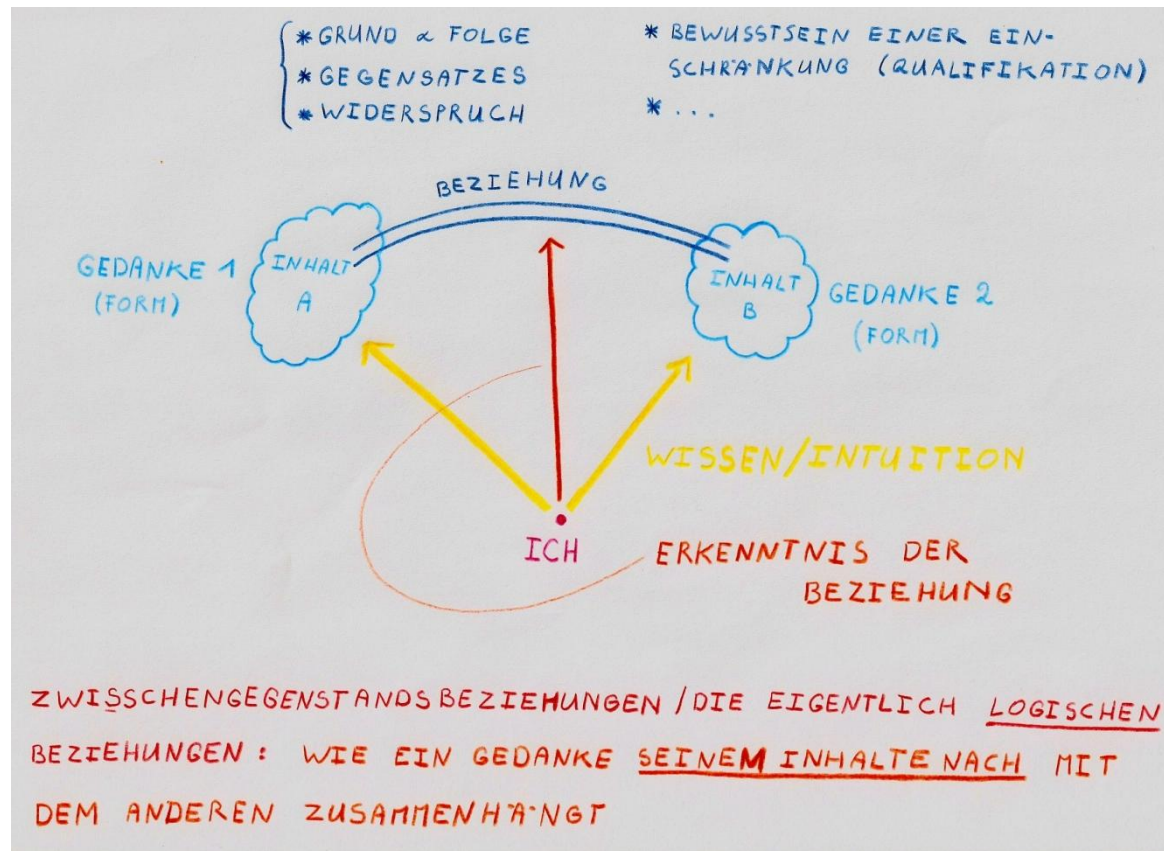 * GRUND ∝ FOLGE
* GEGENSATZES
* WIDERSPRUCH
* BEWUSSTSEIN EINER EIN-
SCHRÄNKUNG (QUALIFIKATION)
* ...
BEZIEHUNG
GEDANKE 1
(FORM)
INHALT
A
INHALT
B
GEDANKE 2
(FORM)
WISSEN/INTUITION
ICH
ERKENNTNIS DER
BEZIEHUNG
ZWISSCHENGEGENSTANDSBEZIEHUNGEN / DIE EIGENTLICH LOGISCHEN
BEZIEHUNGEN: WIE EIN GEDANKE SEINEM INHALTE NACH MIT
DEM ANDEREN ZUSAMMENHÄNGT